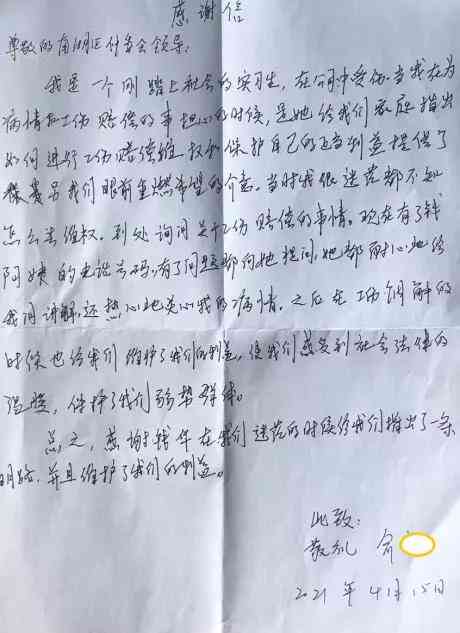 感谢信
尊敬的南湖区什多会领导:
我是一个刚踏上社会的实习生,在公司中受伤.当我在为
病情和工伤赔偿的事担心的时候,是她给我们家庭指出
如何进行工伤赔偿维权和保护自己的正当利益提供了
让我们眼前重燃希望的介意。当时我很迷茫都不知
怎么去维权。到处询问关于工伤赔偿的事情。现在有了钱
阿姨的电话号码,有了问题都向她提问,她都耐心地给
我们讲解,还热心地关心我的病情。之后在工伤调解的
时候也给我们维护了我们的利益,使我们感受到社会法律的
温暖,保护了我们弱势群体。
总之,感谢钱华在我们迷茫的时候给我们指出了一条
明路.并且维护了我们的利益。
此致:
敬礼 俞
2021年4月15日